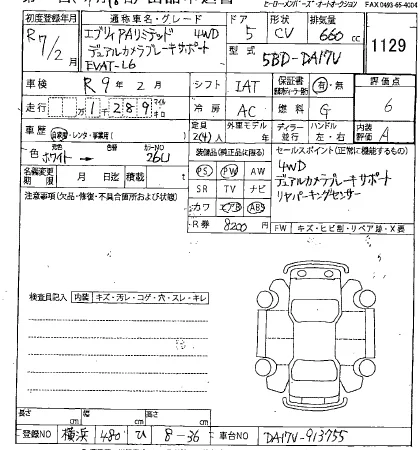 ヒーローメンバーズ・オートオークション FAX 0493-65-4004
初度登録年月 R 7/2月
通称車名・グレード エブリィ PAリミテッド 4WD
デュアルカメラブレーキサポート
EVAT-L6
ドア 5 形状 CV 排気量 660 cc
型式 5BD-DA17V
1129
車検 R 9 年 2 月 シフト IAT 保証書 有・無 評価点 6
走行 万 1 千 2 8 9 マイル キロ 冷房 AC 燃料 G
車歴 自家用・レンタ・事業用( ) 定員 2(4)人 外車モデル ディーラー 並行 ハンドル 左・右 内装評価 A
色 元色 ホワイト → 色替 カラーNO 26U
名義変更期限 月 日迄 積載 t
注意事項(欠品・修復・不具合箇所および状態)
装備品(純正品に限る)
PS PW AW
SR TV ナビ
カワ エアB ABS
R券 8200円
セールスポイント(正常に機能するもの)
4WD
デュアルカメラブレーキサポート
リヤパーキングセンサー
FW キズ・ヒビ割・リペア跡・X要
検査員記入 内装 キズ・汚レ・コゲ・穴・スレ・キレ
長さ cm 幅 cm 高さ cm
登録NO 横浜 480 ひ 8-36 車台NO DA17V-913755